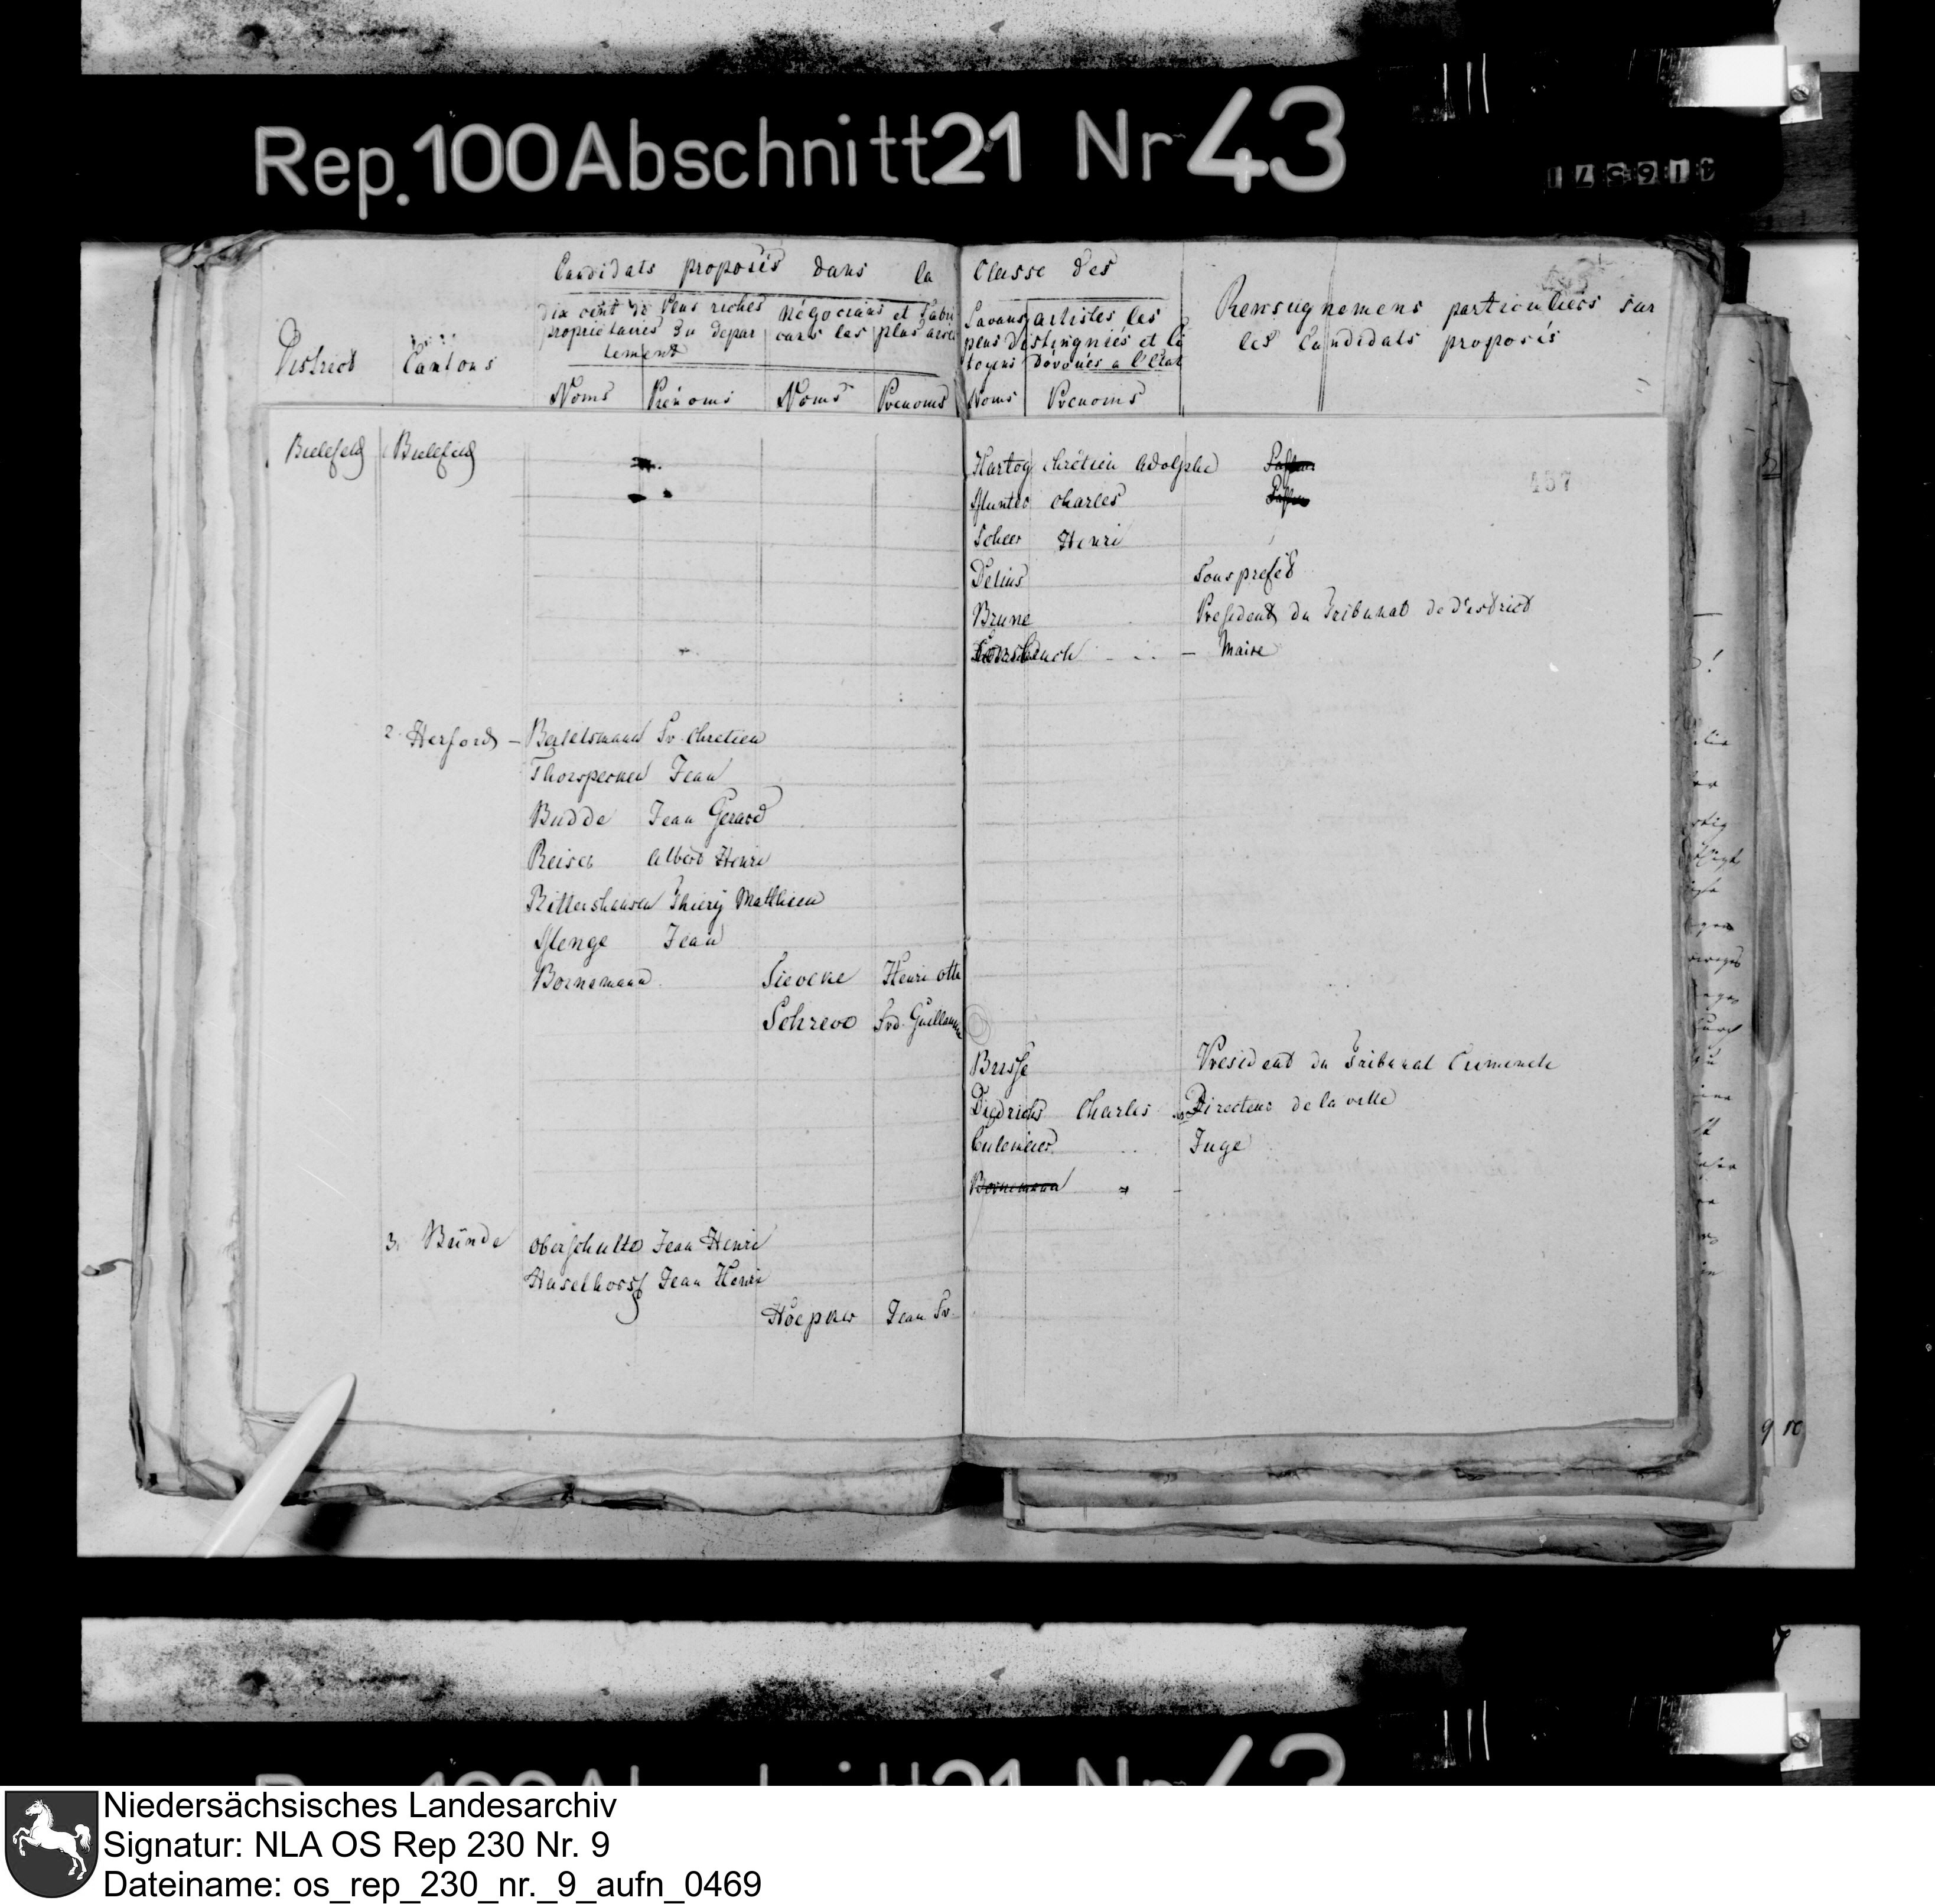 Rep. 100 Abschnitt 21 Nr 43
Candidats proposés dans la Classe des
District
Cantons
dix cent de plus riches propriétaires du departement
négocians et fabricans les plus
Savans artistes les plus distingniés et citoyens dévoués a l'état
Renseignemens particuliers sur les Candidats proposés
Noms Prénoms Noms Prenoms Noms Prenoms
Bielefeld Bielefeld
Hartog chrétien Adolphe
437
Munter Charles
Scheer Henri
Delius Sousprefet
Brune President du Tribunal de District
Maire
2. Herford – Bertelsmann Fr. Chretien
Jean
Budde Jean Gerard
Reiser Albert Henri
Rittershausen Thiery Matthieu
Menge Jean
Bornemann Sieveke Henri Otto
Schrewe Frd. Guillaume
Busse President du Tribunal Criminele
Diedrichs Charles Directeur de la ville
Culemeier Juge
Bornemann
3. Bünde Oberschulte Jean Henri
Haselhorst Jean Henri
Höepker Jean Fr.
9 10
Niedersächsisches Landesarchiv
Signatur: NLA OS Rep 230 Nr. 9
Dateiname: os_rep_230_nr._9_aufn_0469